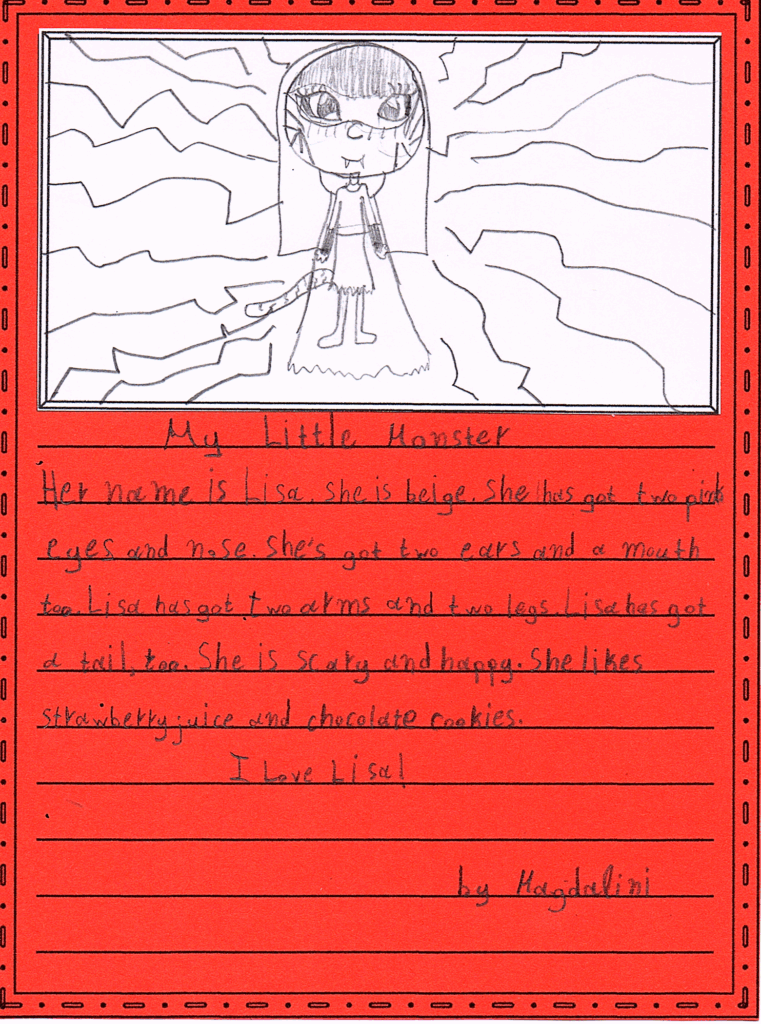 My Little Monster
Her name is Lisa. She is beige. She has got two pink
eyes and nose. She's got two ears and a mouth
too. Lisa has got two arms and two legs. Lisa has got
a tail, too. She is scary and happy. She likes
strawberry juice and chocolate cookies.
I Love Lisa!
by Magdalini